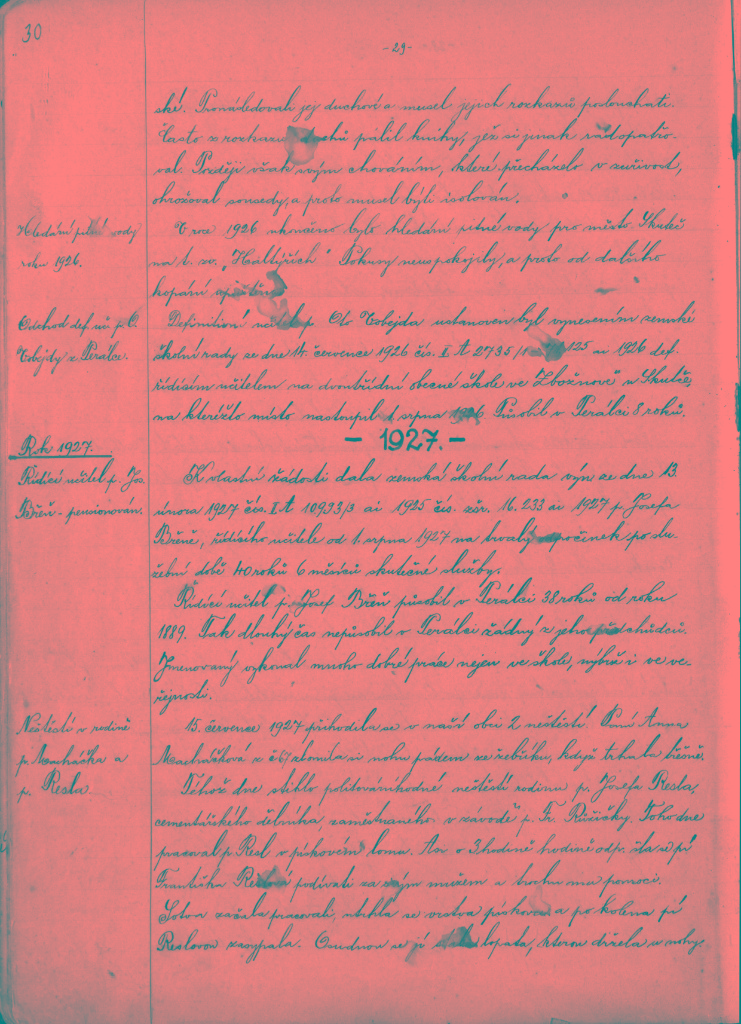 30
-29-
ské. Pronásledovali jej duchové a musel jejich rozkazů poslouchati.
Často z rozkazu duchů pálil knihy, jež si jinak rád opatřo-
val. Později však svým chováním, které přecházelo v zuřivost,
ohrožoval sousedy, a proto musel býti isolován.
Hledání pitné vody
roku 1926.
V roce 1926 ukončeno bylo hledání pitné vody pro město Skuteč
na t. zv. „Haltýřích" Pokusy neuspokojily, a proto od dalšího
kopání upuštěno.
Odchod def. uč. p. O.
Trbejdy z Perálce.
Definitivní učitel p. Oto Trbejda ustanoven byl vynesením zemské
školní rady ze dne 14. července 1926 čís. I. A 2735/1 125 ai 1926 def.
řídícím učitelem na dvoutřídní obecné škole ve Zbožnově u Skutče,
na kteréžto místo nastoupil 1. srpna 1926. Působil v Perálci 8 roků.
- 1927. -
Rok 1927.
Řídící učitel p. Jos.
Břeň - pensionován.
K vlastní žádosti dala zemská školní rada výn. ze dne 13.
února 1927 čís. I. A 10993/3 ai 1925 čís. zár. 16.233 ai 1927 p. Josefa
Břeně, řídícího učitele od 1. srpna 1927 na trvalý odpočinek po slu-
žební době 40 roků 6 měsíců skutečné služby.
Řídící učitel p. Josef Břeň působil v Perálci 38 roků od roku
1889. Tak dlouhý čas nepůsobil v Perálci žádný z jeho předchůdců.
Jmenovaný vykonal mnoho dobré práce nejen ve škole, nýbrž i ve ve-
řejnosti.
Neštěstí v rodině
p. Macháčka a
p. Resla.
15. července 1927 přihodila se v naší obci 2 neštěstí. Paní Anna
Macháčková z č. 67 zlomila si nohu pádem ze žebříku, když trhala třešně.
Téhož dne stihlo politováníhodné neštěstí rodinu p. Josefa Resla,
cementářského dělníka, zaměstnaného v závodě p. Fr. Růžičky. Toho dne
pracoval p. Resl v pískovém lomu. Asi o 3 hodině hodině odp. šla se pí
Františka Reslová podívati za svým mužem a trochu mu pomoci.
Sotva začala pracovati, utrhla se vrstva písková a po kolena pí
Reslovou zasypala. Osudnou se jí stala lopata, kterou držela u nohy.